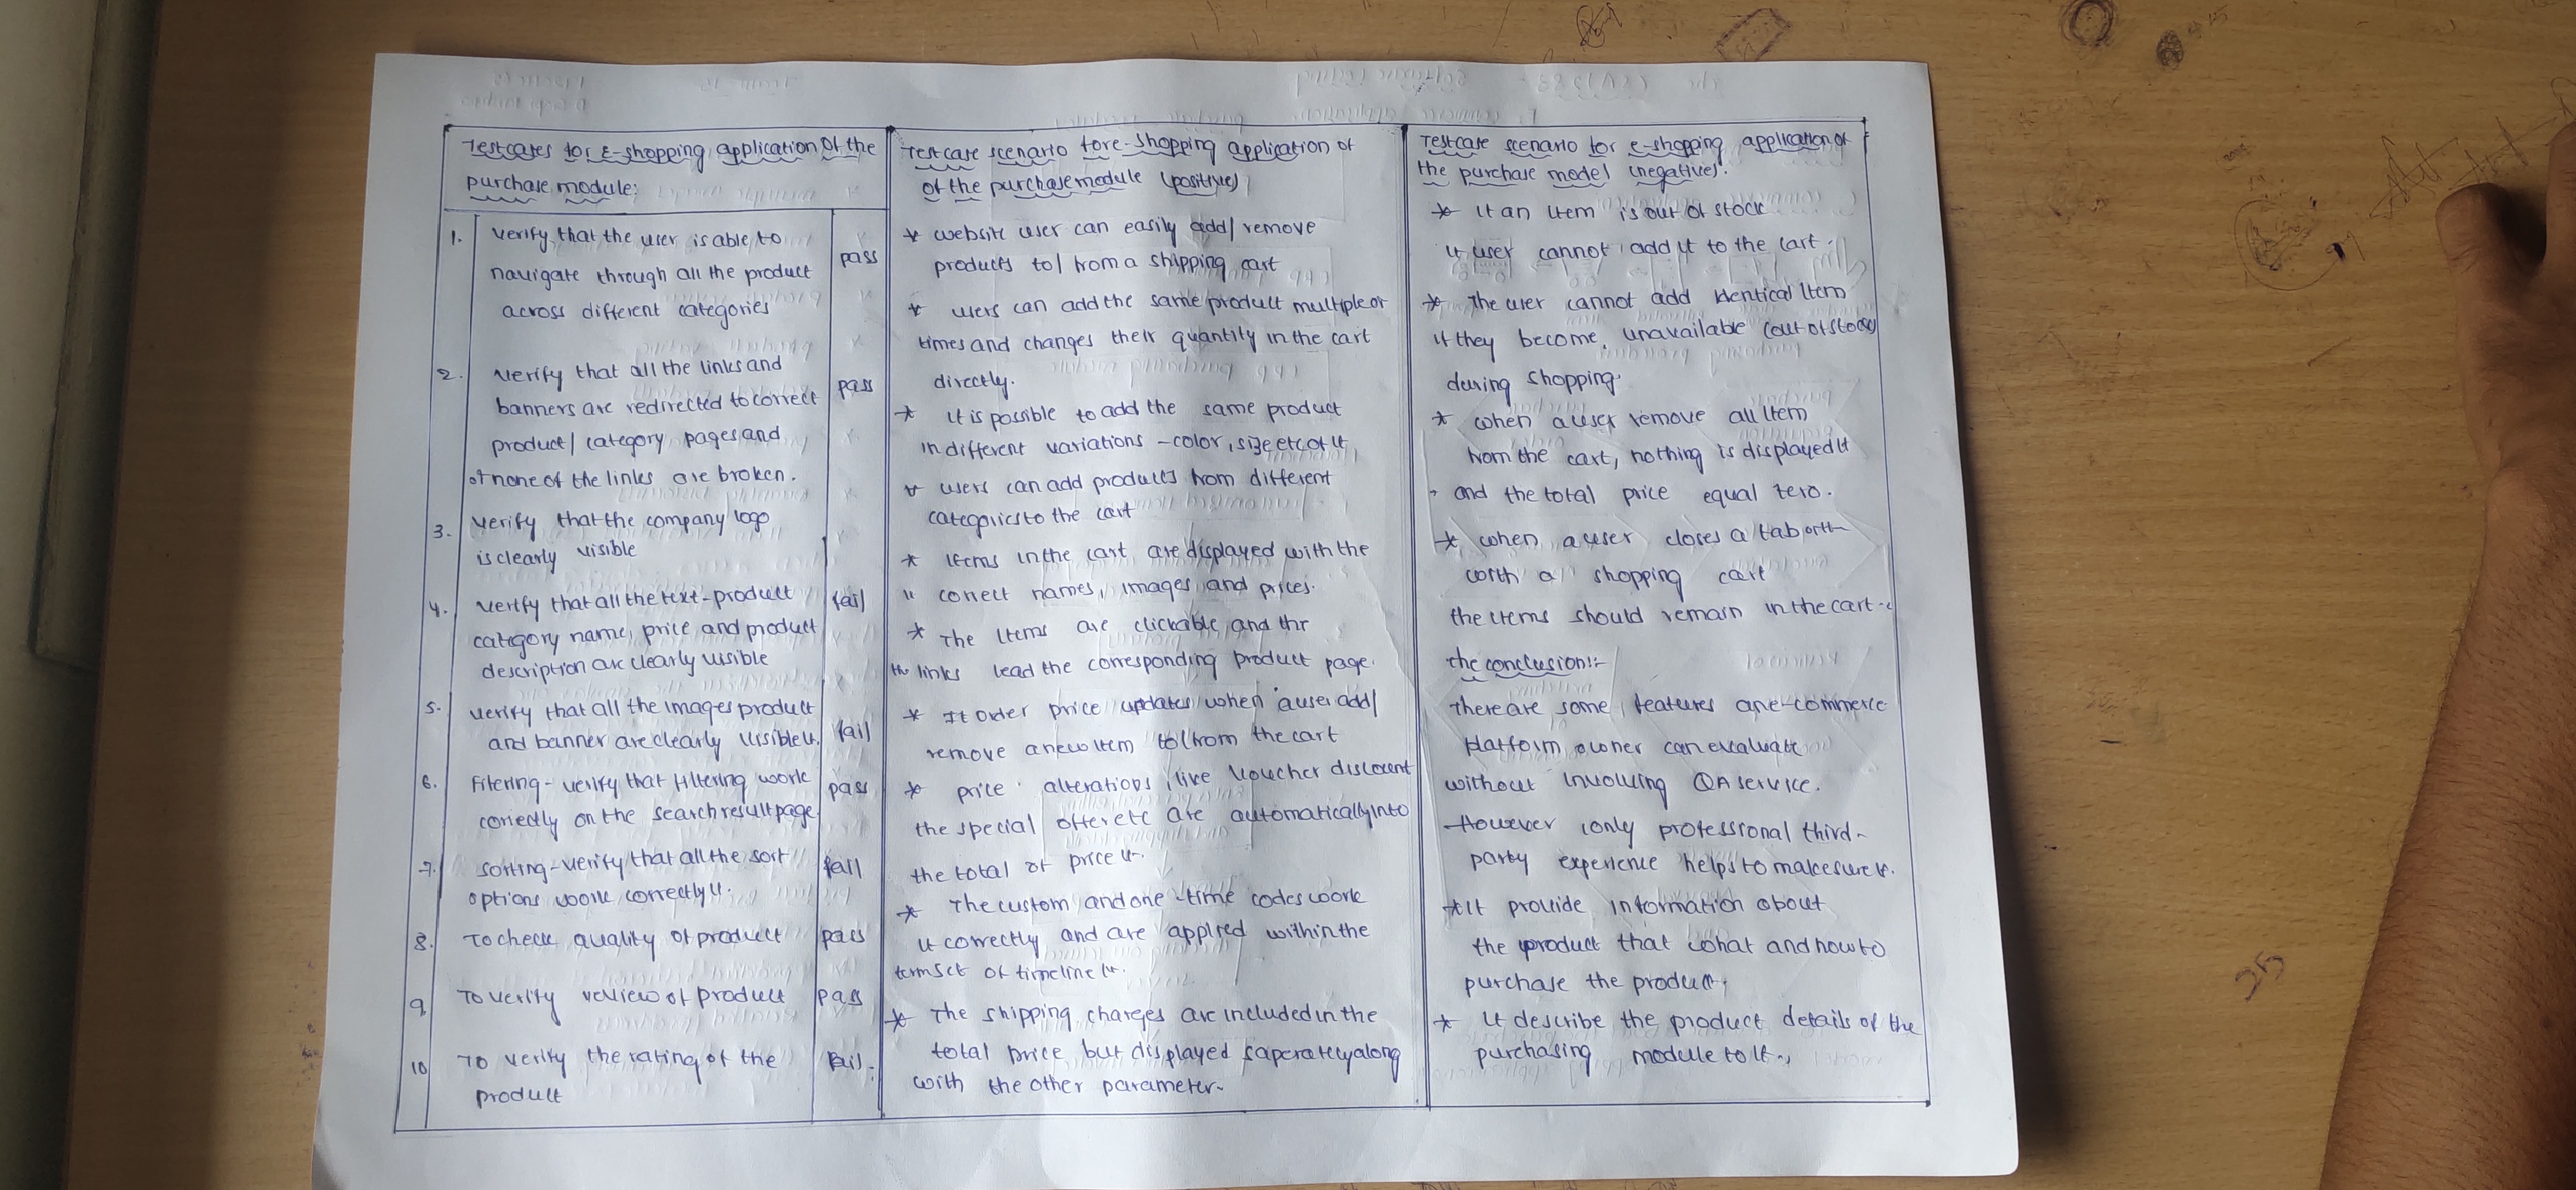 Testcases for E-shopping application of the
purchase module:
1. verify that the user is able to
navigate through all the product
across different categories
pass
2. verify that all the links and
banners are redirected to correct
product/category pages and
of none of the links are broken.
pass
3. verify that the company logo
is clearly visible
4. verify that all the text-product
category name, price and product
description are clearly visible
fail
5. verify that all the images product
and banner are clearly
fail
6. Filtering - verify that filtering work
correctly on the search result page
pass
7. sorting - verify that all the sort
options work correctly
fail
8. To check quality of product
pass
9 To verify review of product
pass
10 To verify the rating of the
product
fail
Test case scenario for e-shopping application of
of the purchase module (positive)
* website user can easily add/remove
products to/from a shipping cart
* users can add the same product multiple or
times and changes their quantity in the cart
directly.
* it is possible to add the same product
in different variations - color, size etc of it
* users can add products from different
to the cart
* items in the cart are displayed with the
" correct names, images and prices.
* The items are clickable and thr
the links lead the corresponding product page.
* It order price updates when a user add/
remove a new item to/from the cart
* price alterations like voucher discount
the special offer etc are automatically into
the total of price
* The custom and one-time codes work
it correctly and are applied within the
of timeline
* The shipping charges are included in the
total price but displayed saperately along
with the other parameter.
Testcase scenario for e-shopping application of
the purchase model (negative):
* if an item is out of stock
it user cannot add it to the cart.
* The user cannot add identical item
if they become unavailable (out of stock)
during shopping.
* when a user remove all item
from the cart, nothing is displayed it
and the total price equal zero.
* when a user closes a tab
with a shopping cart
the items should remain in the cart
the conclusion:-
there are some features an e-commerce
platform owner can evaluate
without involving QA service.
- However only professional third-
party experience helps to make sure
* It provide information about
the product that what and how to
purchase the product,
* It describe the product details of the
purchasing module to it.